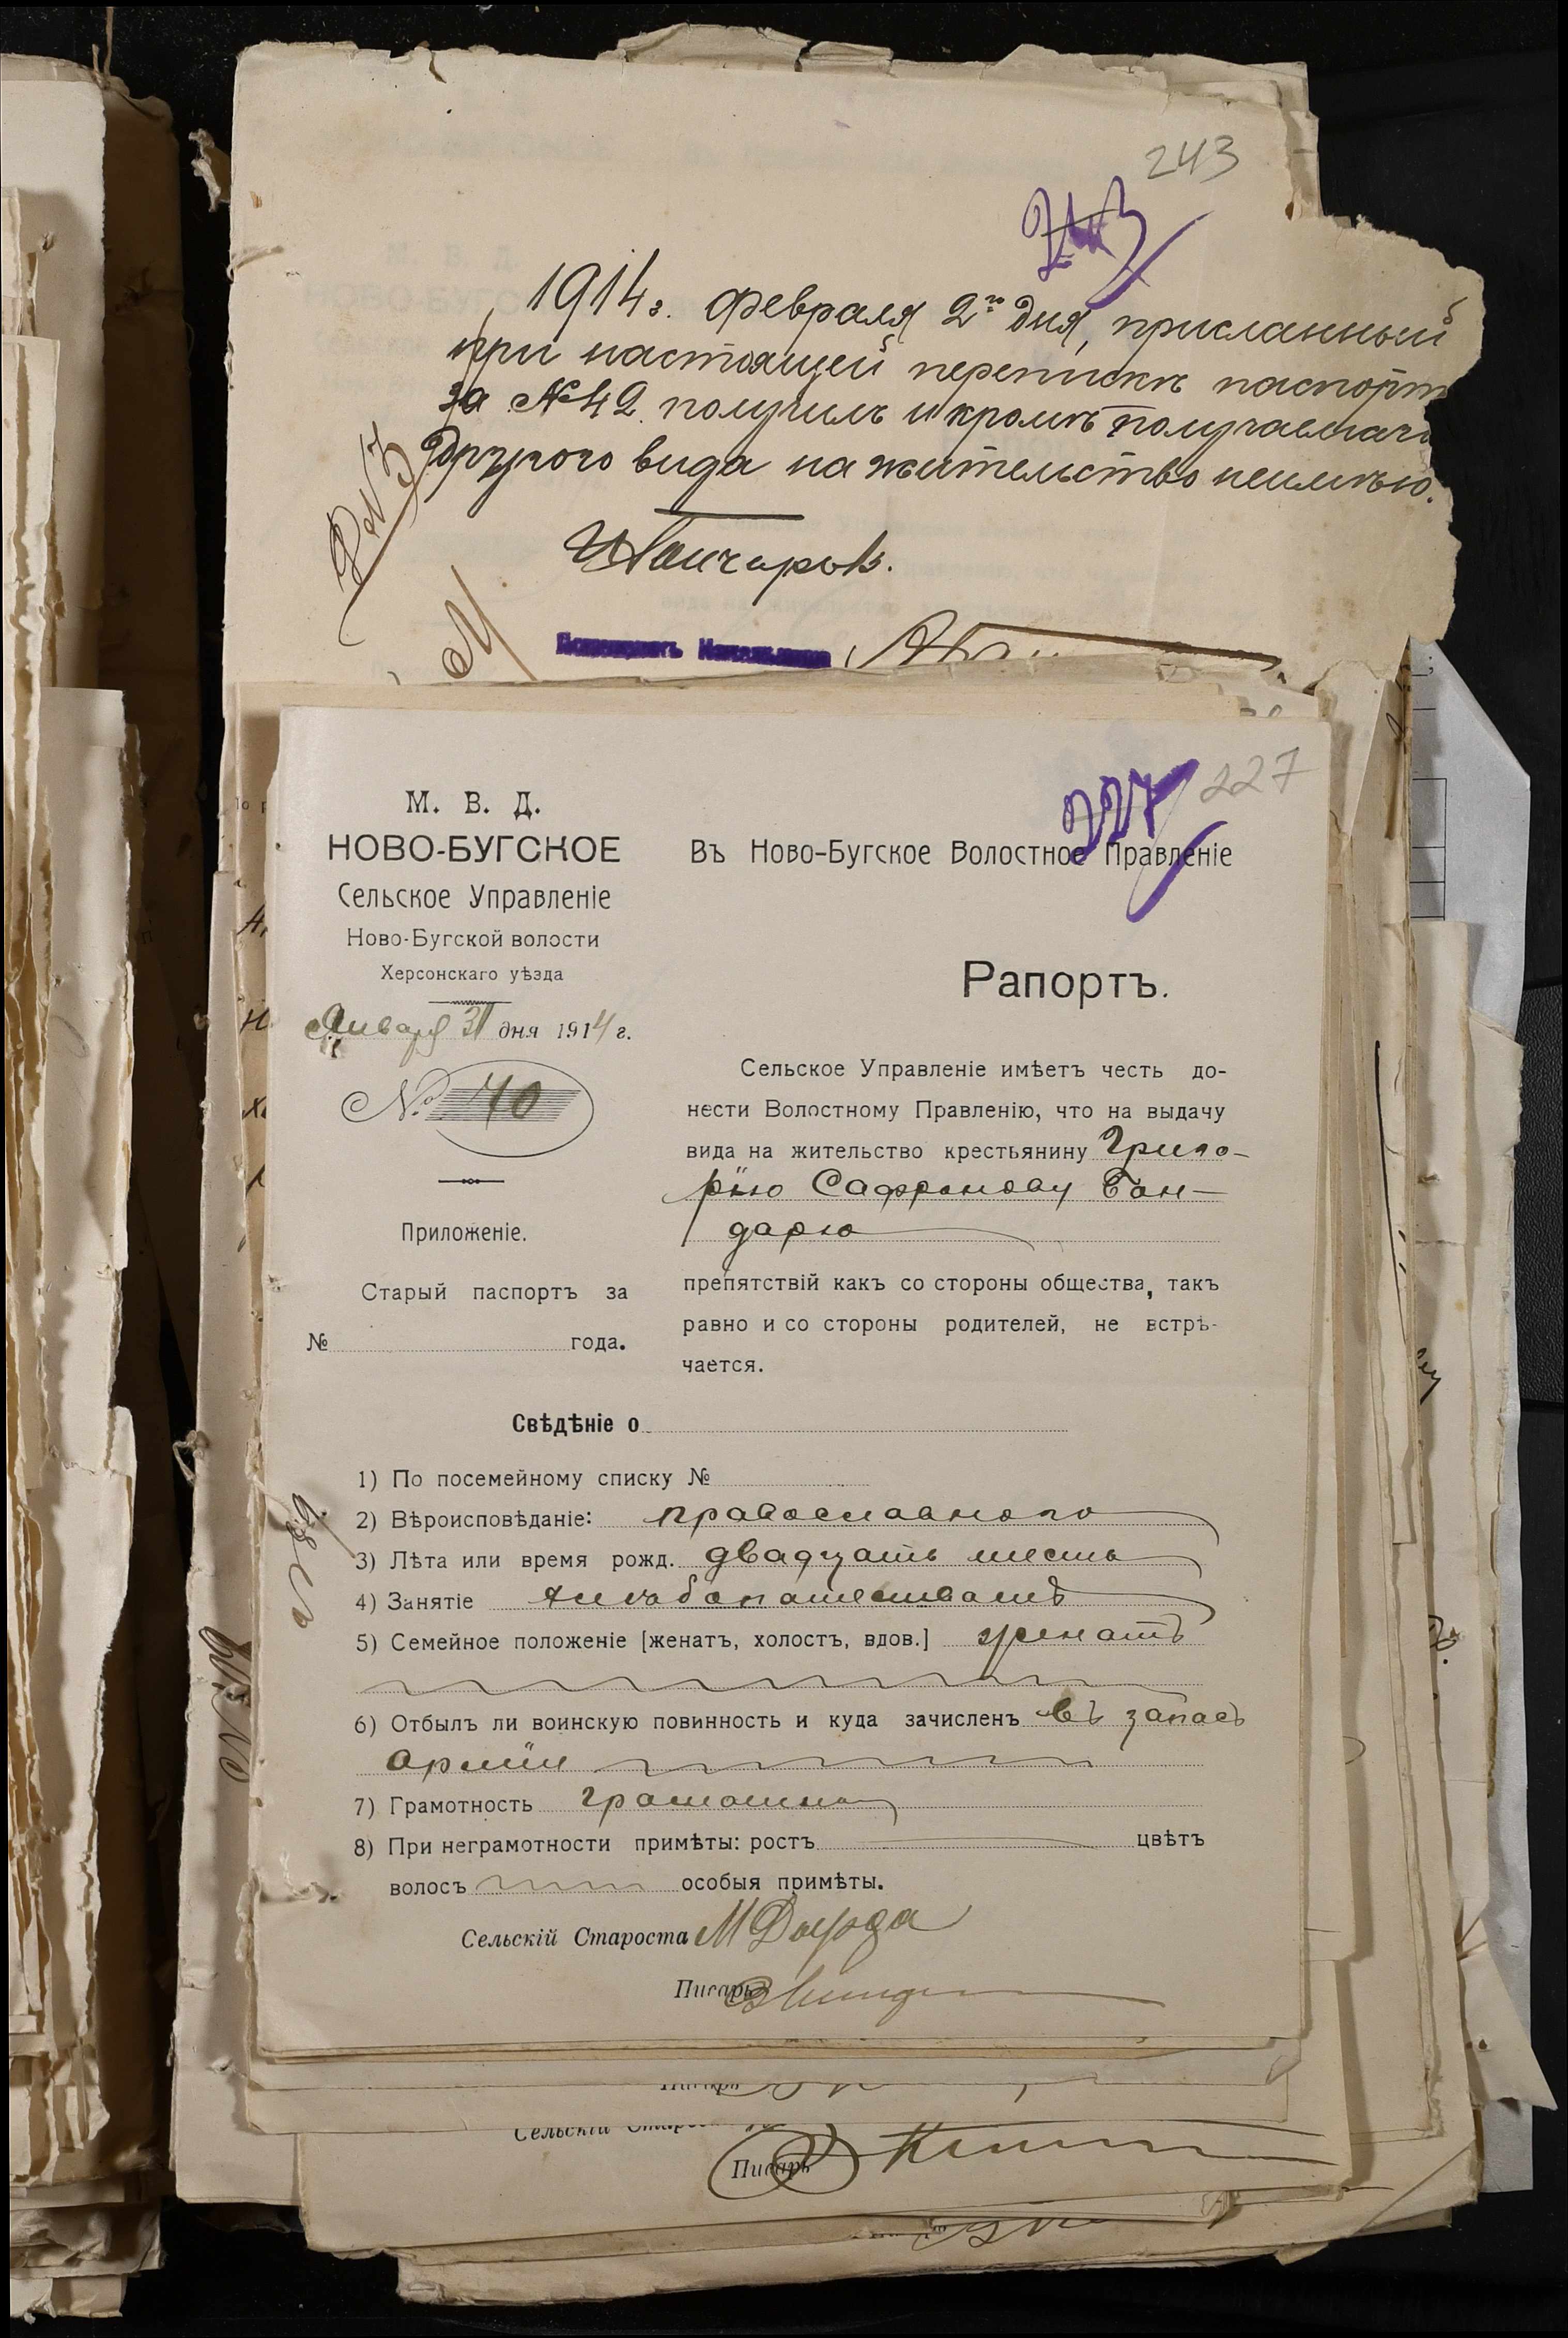 243
243
1914г. февраля 2го дня, присланный
при настоящей перепискѣ паспортъ
за №42 получилъ и кромѣ получаемаго
другого вида на жительство неимѣю.
227
227
М. В. Д.
НОВО-БУГСКОЕ
Сельское Управленіе
Ново-Бугской волости
Херсонскаго уѣзда
Января 31 дня 1914 г.
№ 40
Приложеніе.
Старый паспортъ за
№ года.
Въ Ново-Бугское Волостное Правленіе
Рапортъ.
Сельское Управленіе имѣетъ честь до-
нести Волостному Правленію, что на выдачу
вида на жительство крестьянину Григо-
рію Сафронову Бон-
дарю
препятствій какъ со стороны общества, такъ
равно и со стороны родителей, не встрѣ-
чается.
Свѣдѣніе о
1) По посемейному списку №
2) Вѣроисповѣданіе: православнаго
3) Лѣта или время рожд. двадцать шесть
4) Занятіе хлѣбопашествомъ
5) Семейное положеніе [женатъ, холостъ, вдов.] женатъ
6) Отбылъ ли воинскую повинность и куда зачисленъ въ запасъ
арміи
7) Грамотность грамотный
8) При неграмотности примѣты: ростъ цвѣтъ
волосъ особыя примѣты.
Сельскій Староста М Дырда
Писарь
Писарь
Сельскій Старо
Писарь